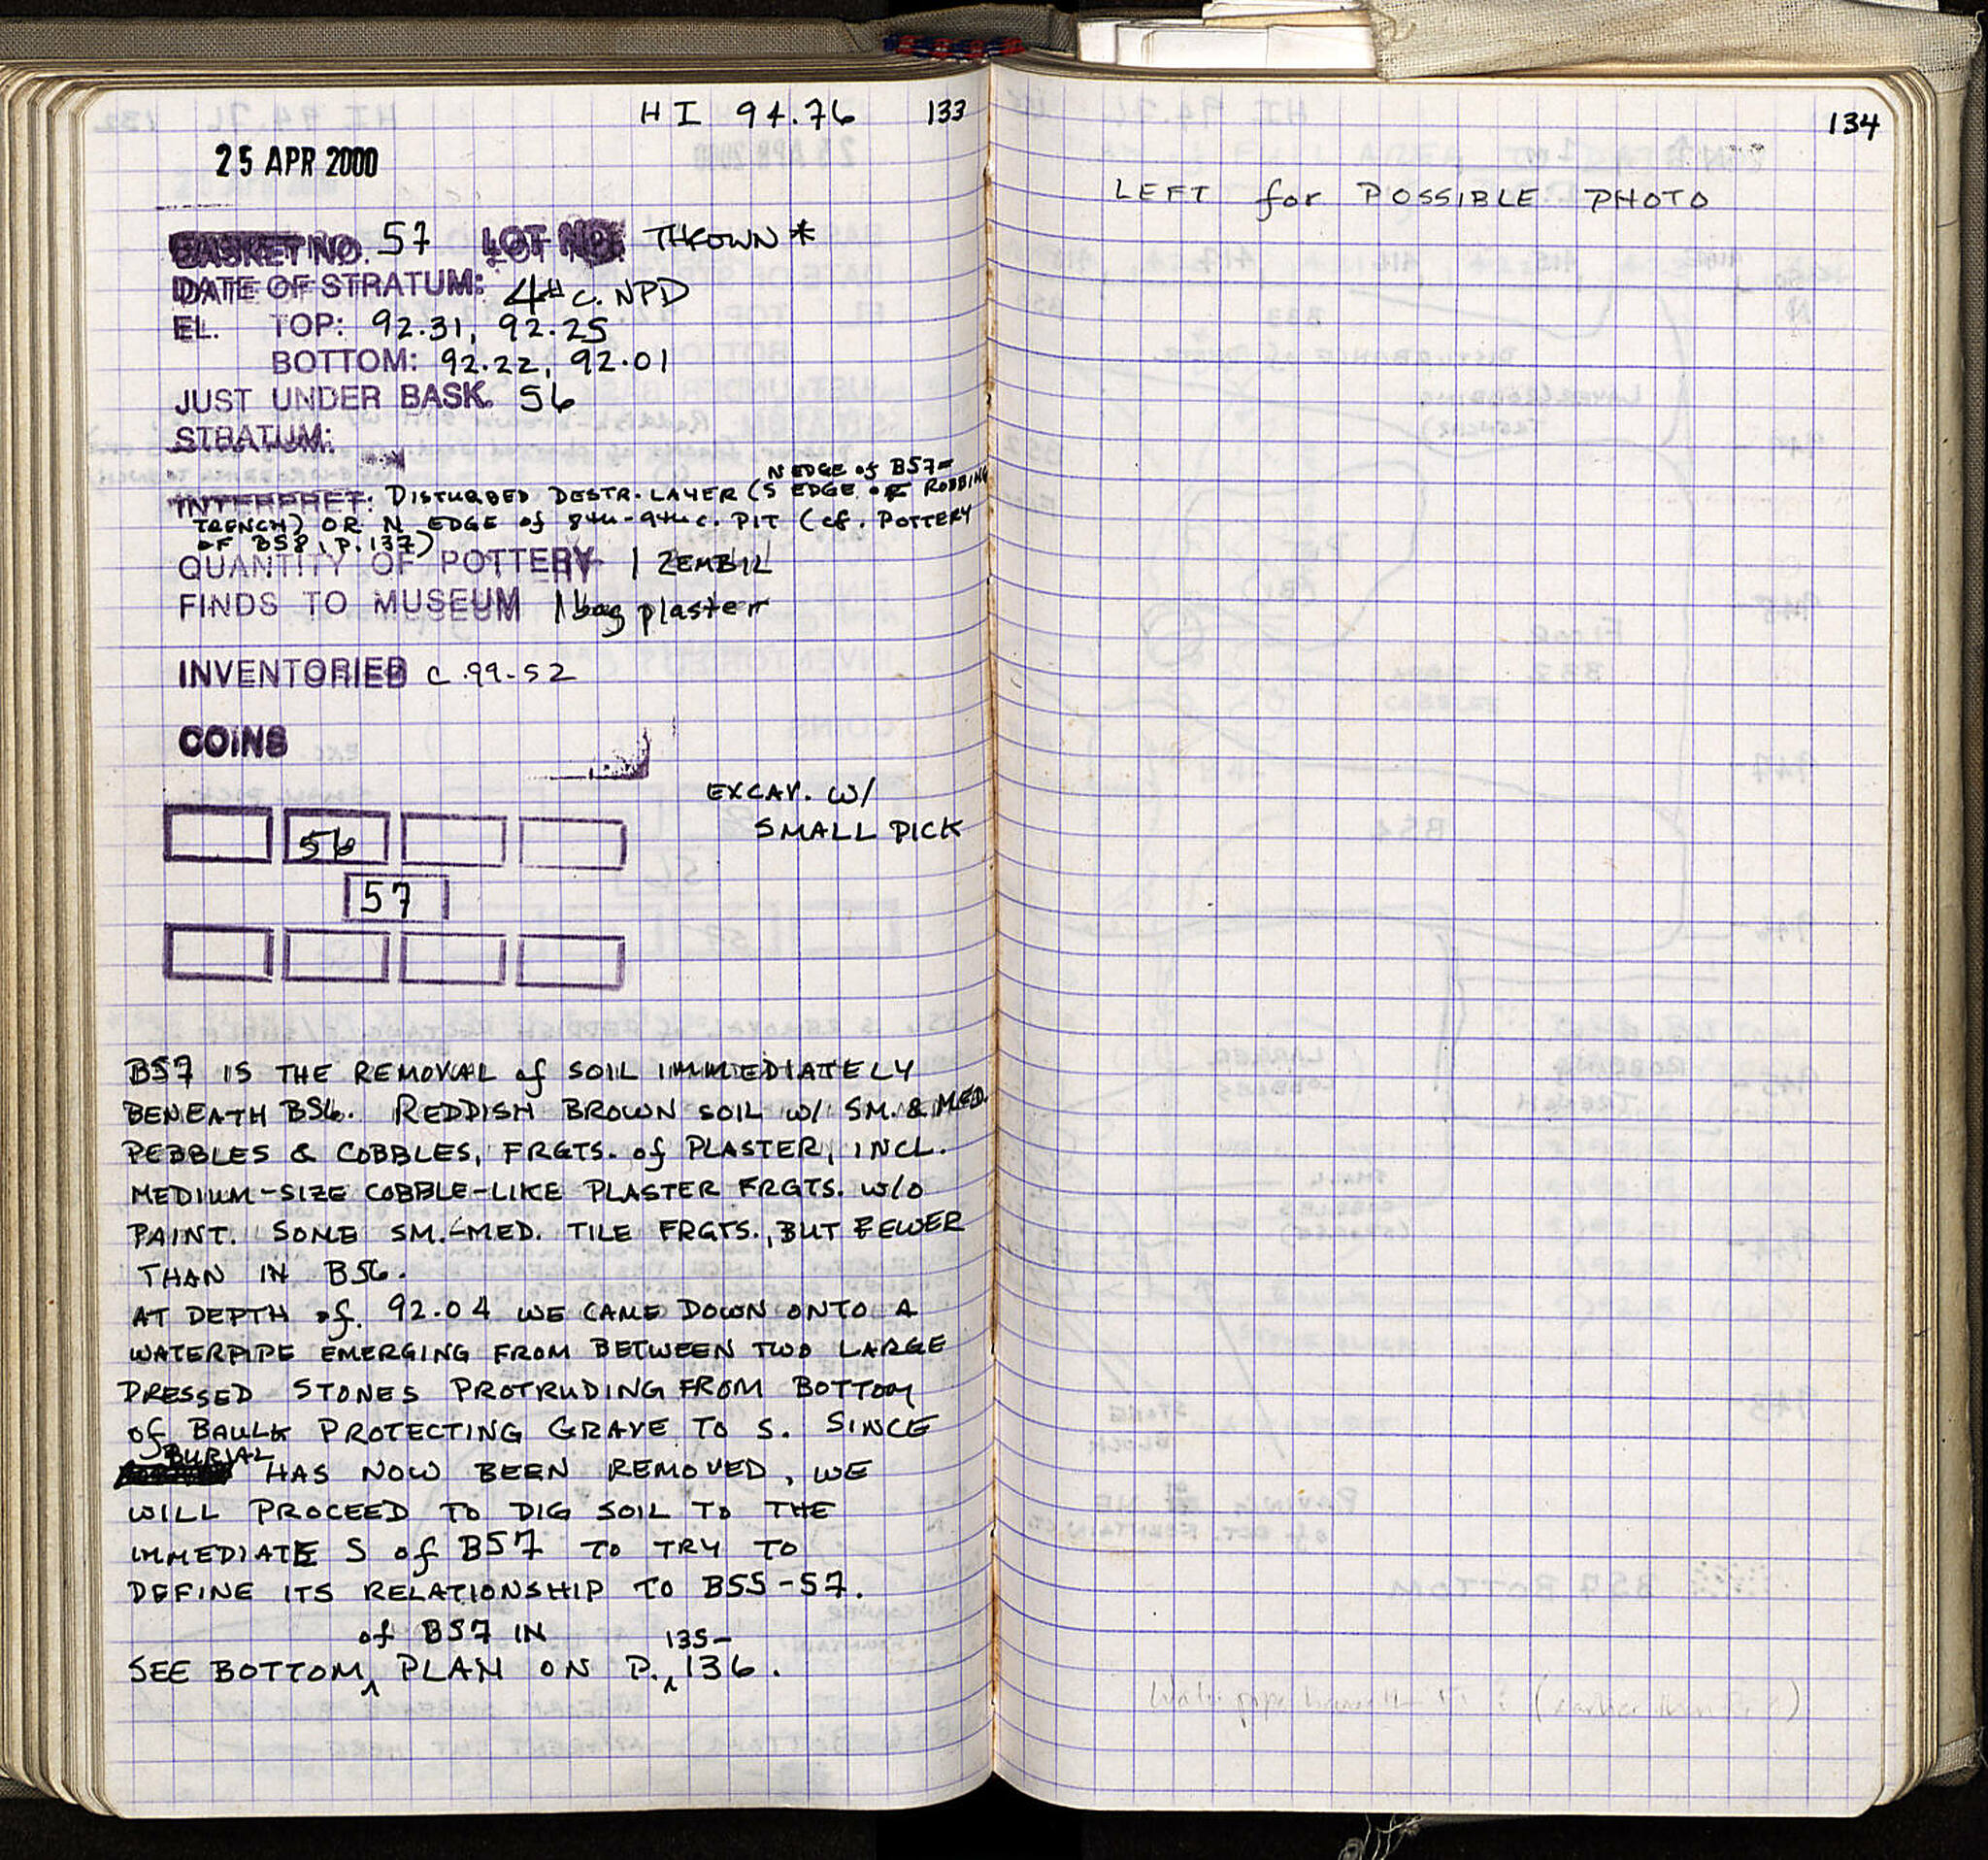 HI 94.76 133
25 APR 2000
BASKET NO. 57 LOT NO. THROWN *
DATE OF STRATUM: 4th c. NPD
EL. TOP: 92.31, 92.25
BOTTOM: 92.22, 92.01
JUST UNDER BASK. 56
STRATUM:
N EDGE of B57=
INTERPRET: DISTURBED DESTR. LAYER (S EDGE OF ROBBING
TRENCH) OR N EDGE of 8th-9th c. PIT (cf. POTTERY
OF B58, P. 137)
QUANTITY OF POTTERY 1 ZEMBIL
FINDS TO MUSEUM 1 bag plaster
INVENTORIED C.99-52
COINS
EXCAV. W/
SMALL PICK
56
57
B57 IS THE REMOVAL of SOIL IMMEDIATELY
BENEATH B56. REDDISH BROWN SOIL W/ SM. & MED.
PEBBLES & COBBLES, FRGTS. of PLASTER, INCL.
MEDIUM-SIZE COBBLE-LIKE PLASTER FRGTS. W/O
PAINT. SOME SM.-MED. TILE FRGTS., BUT FEWER
THAN IN B56.
AT DEPTH of. 92.04 WE CAME DOWN ONTO A
WATERPIPE EMERGING FROM BETWEEN TWO LARGE
DRESSED STONES PROTRUDING FROM BOTTOM
of BAULK PROTECTING GRAVE TO S. SINCE
BURIAL HAS NOW BEEN REMOVED, WE
WILL PROCEED TO DIG SOIL TO THE
IMMEDIATE S of B57 TO TRY TO
DEFINE ITS RELATIONSHIP TO B55-57.
of B57 IN 135-
SEE BOTTOM PLAN ON P. 136.
134
LEFT for POSSIBLE PHOTO